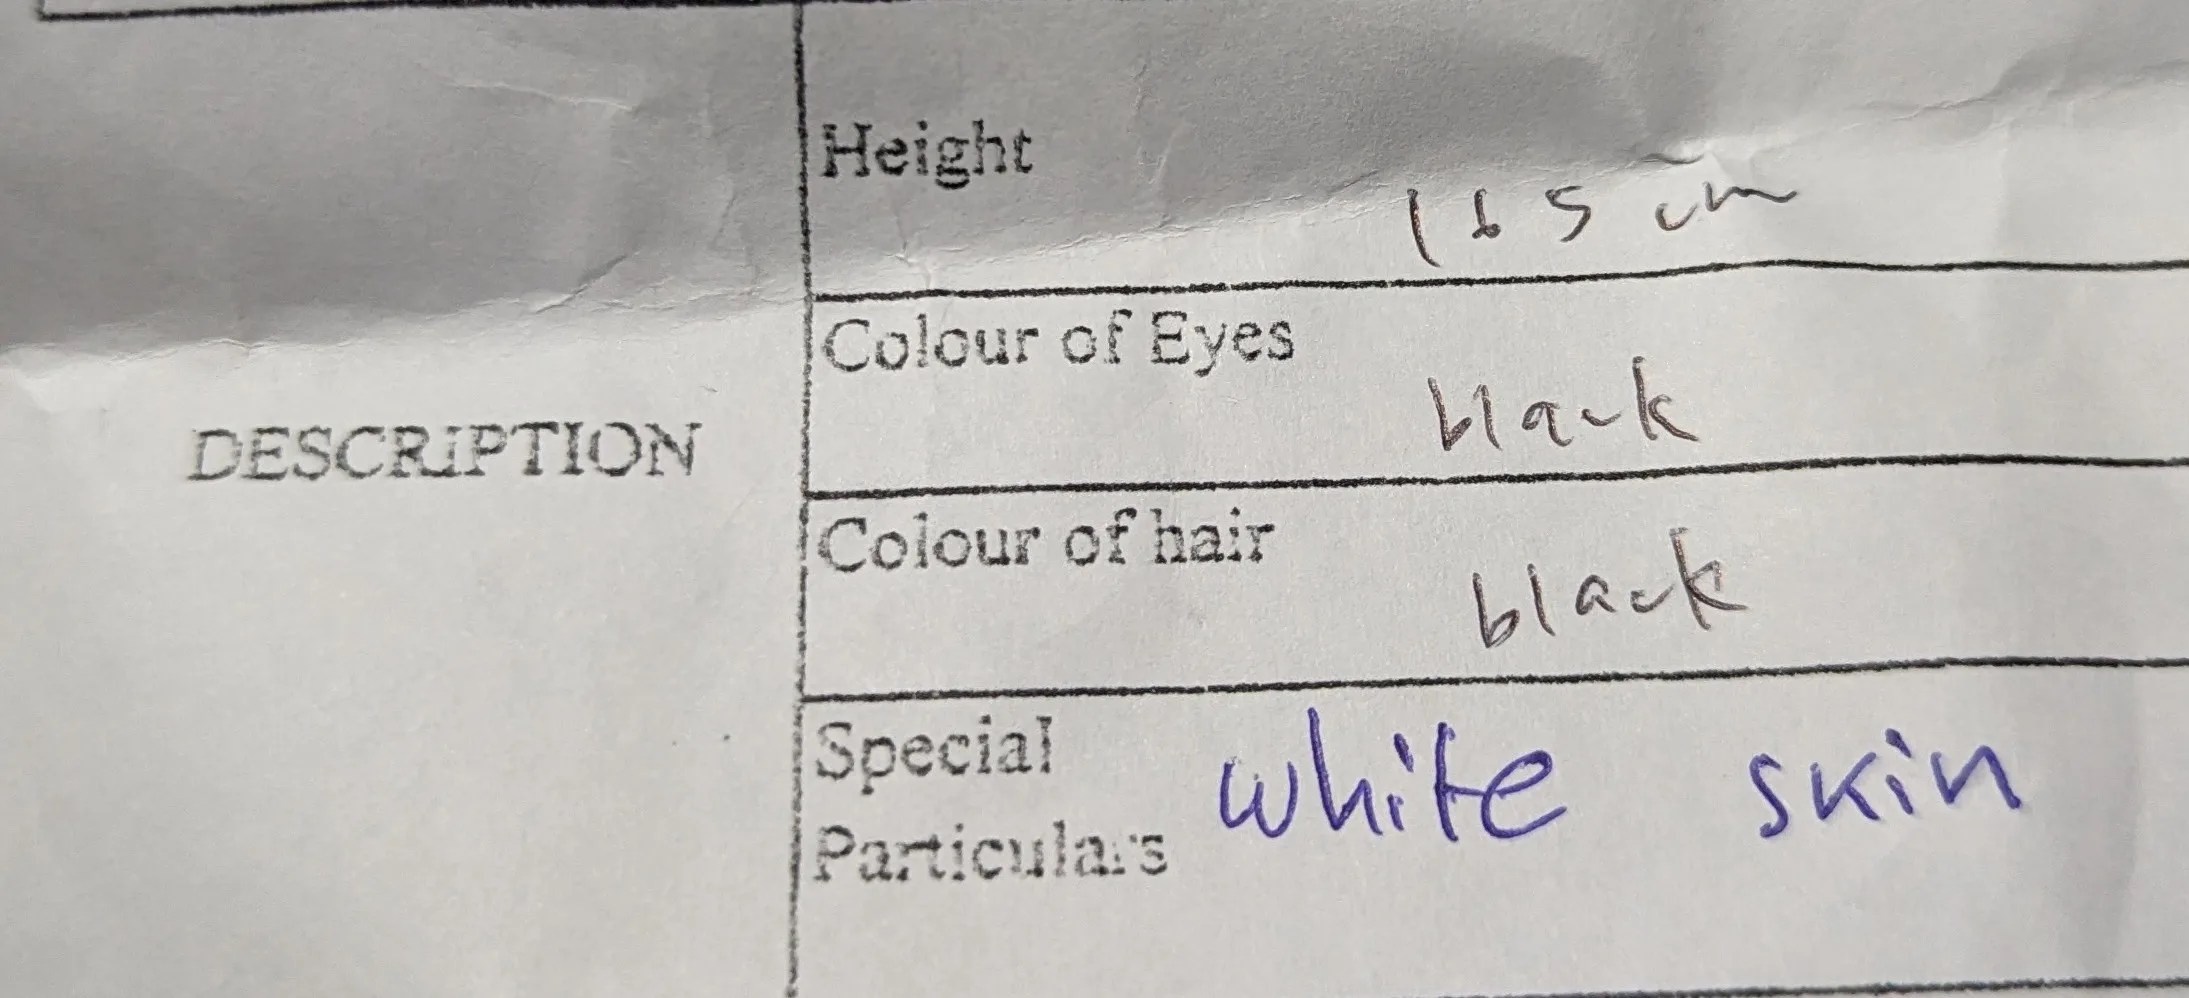 Height
165 cm
Colour of Eyes
black
DESCRIPTION
Colour of hair
black
Special
Particulars
white skin